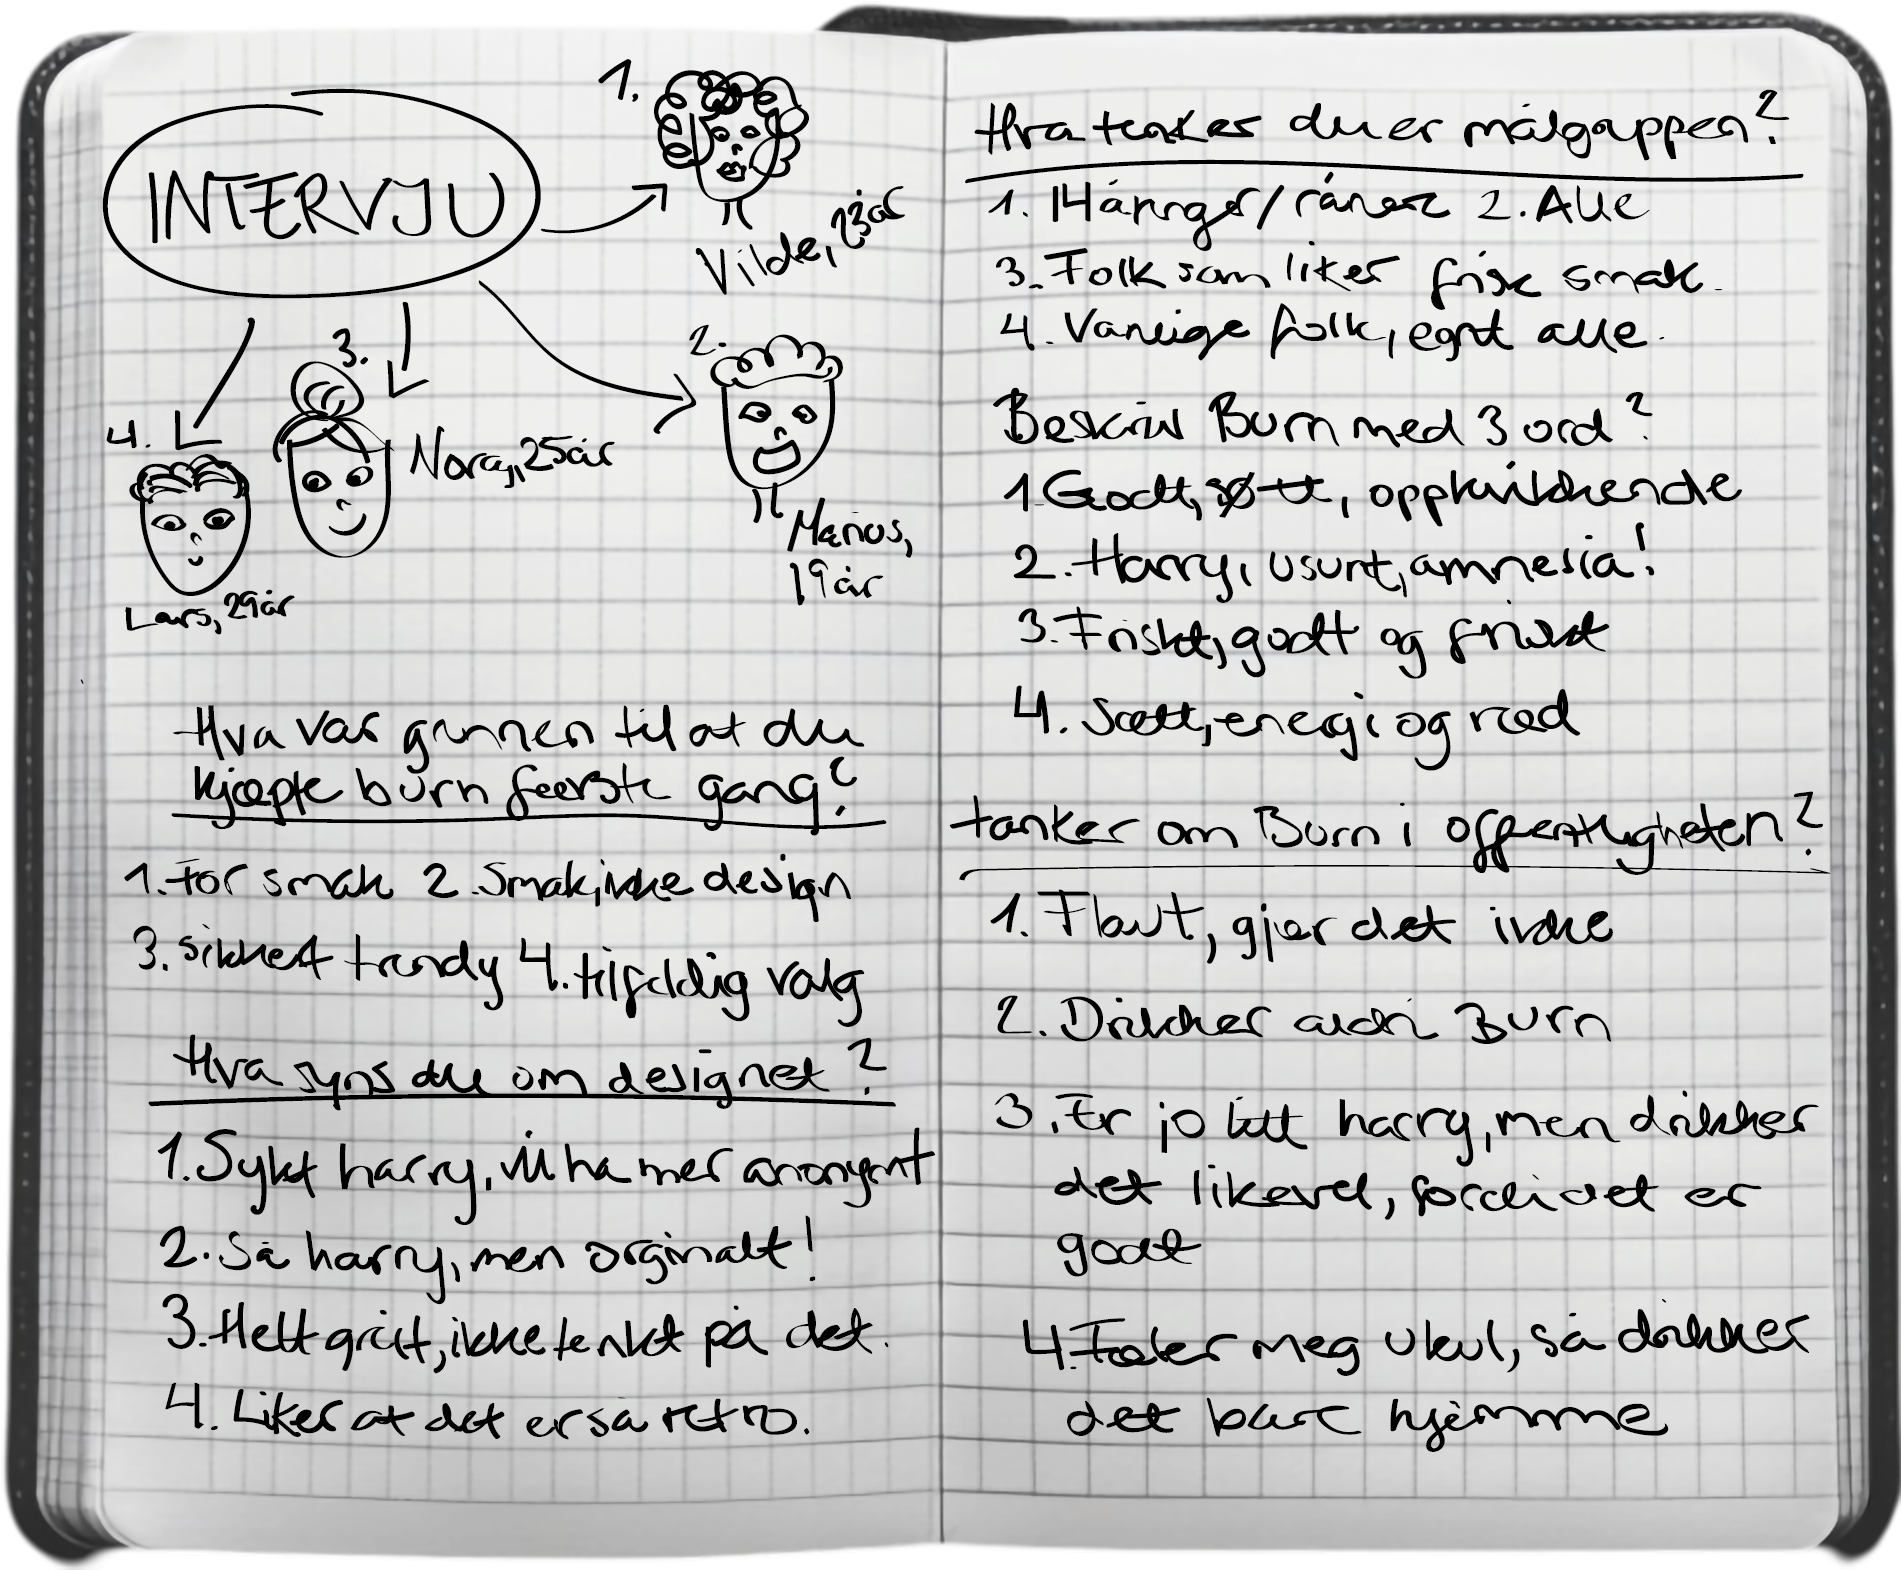 INTERVJU
1.
Vilde, 23år
2.
Marius,
19år
3.
Nora, 25år
4.
Lars, 29år
Hva var grunnen til at du
kjøpte burn første gang?
1. For smak 2. Smak, ikke design
3. sikkert trendy 4. tilfeldig valg
Hva syns du om designet?
1. Sykt harry, vil ha mer anonymt
2. Så harry, men orginalt!
3. Helt greit, ikke tenkt på det.
4. Liker at det er så retro.
Hva tenker du er målgruppen?
1. 14åringer/rånere 2. Alle
3. Folk som liker frisk smak.
4. Vanlige folk, egnt alle.
Beskriv Burn med 3 ord?
1. Godt, søtt, oppkvikkende
2. Harry, usunt, amnesia!
3. Friskt, godt og friskt
4. Søtt, energi og rød
tanker om Burn i offentligheten?
1. Flaut, gjør det ikke
2. Drikker aldri Burn
3. Er jo litt harry, men drikker
det likevel, fordi det er
godt
4. Føler meg ukul, så drikker
det bare hjemme